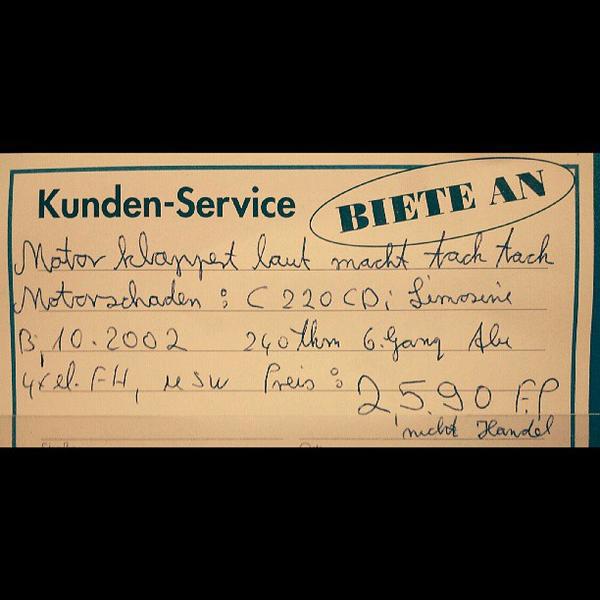 Kunden-Service
BIETE AN
Motor klappert laut macht tach tach
Motorschaden : C 220 CDi Limosine
Bj 10.2002 240 tkm 6.Gang Alu
4x el. FH, usw Preis : 2590 FP
nicht Handel